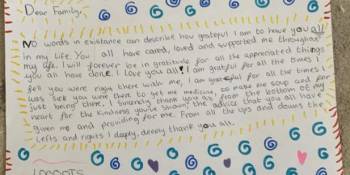 Dear Family,
No words in existance can describe how grateful I am to have you all
in my life. You all have cared, loved and supported me throughout
my life. I will forever be in gratitude for all the appreciated things
you all have done. I love you all! I am grateful for all the times I
felt you were right there with me, I am grateful for all the times I
was sick you were there to get me medicine, to make me soup and for
just being there, I sincerely thank you all from the bottom of my
heart for the kindness you've shown, the advice that you all have
given me and providing for me. From all the ups and downs the
lefts and rights I deeply, deeply thank you all.